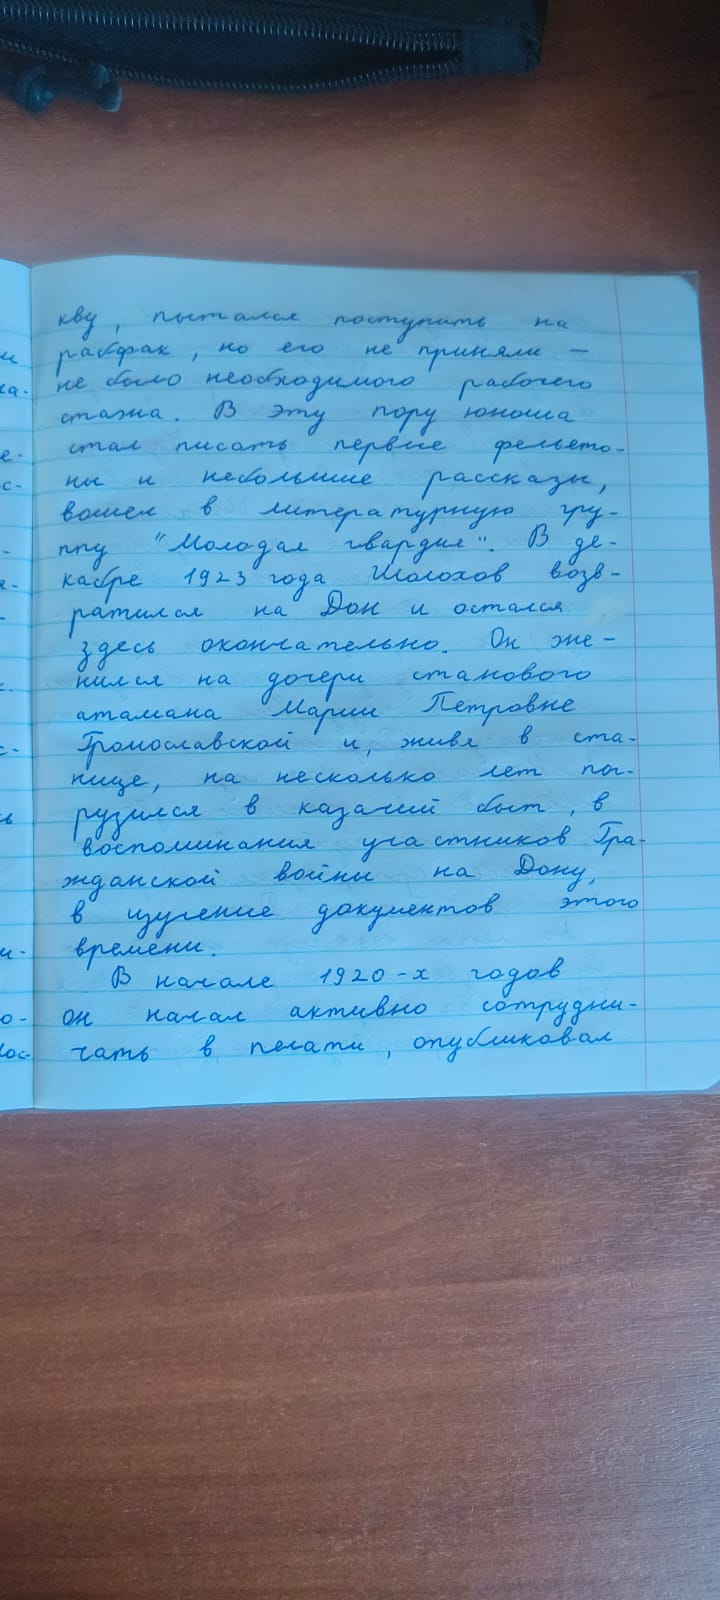 кву, пытался поступить на
рабфак, но его не приняли —
не было необходимого рабочего
стажа. В эту пору юноша
стал писать первые фельето-
ны и небольшие рассказы,
вошел в литературную гру-
ппу "Молодая гвардия". В де-
кабре 1923 года Шолохов возв-
ратился на Дон и остался
здесь окончательно. Он же-
нился на дочери станового
атамана Марии Петровне
Громославской и, живя в ста-
нице, на несколько лет пог-
рузился в казачий быт, в
воспоминания участников Гра-
жданской войны на Дону,
в изучение документов этого
времени.
В начале 1920-х годов
он начал активно сотрудни-
чать в печати, опубликовал